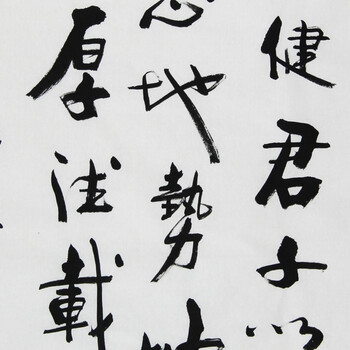 健君子以
息地勢坤
厚德載